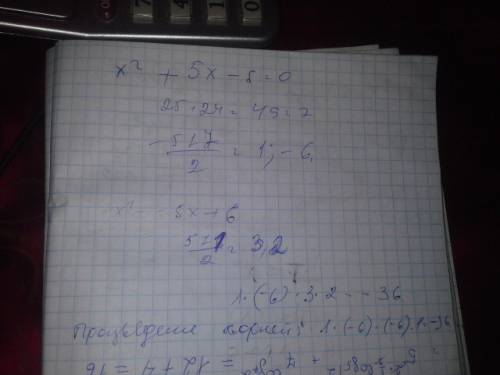 x² + 5x - 6 = 0
25 + 24 = 49 = 7
(-5 ± 7)/2 = 1; -6
x² - 5x + 6
(5 ± 1)/2 = 3, 2
1·(-6)·3·2 = -36
Произведение корней: 1·(-6)·(-6)·1 = -36
= 12 + 4 = 16